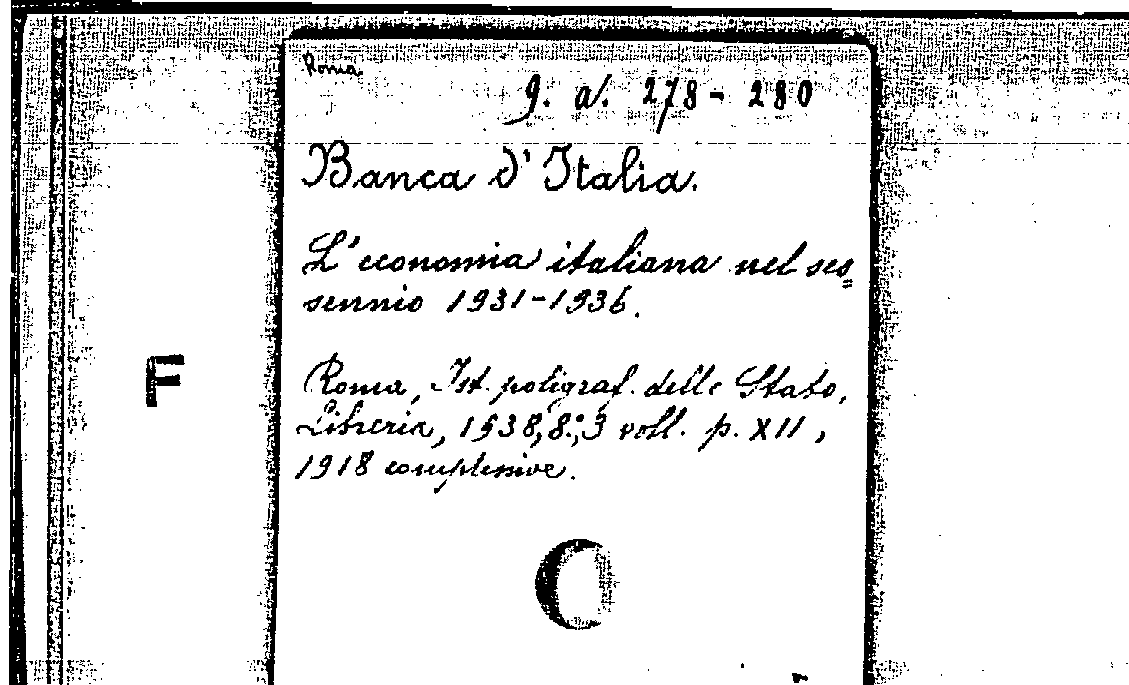 Roma
g. a. 278 - 280
Banca d'Italia.
L'economia italiana nel ses=
sennio 1931-1936.
F
Roma, Ist. poligraf. delle Stato,
Libreria, 1938, 8.°, 3 voll. p. XII,
1918 complessive.